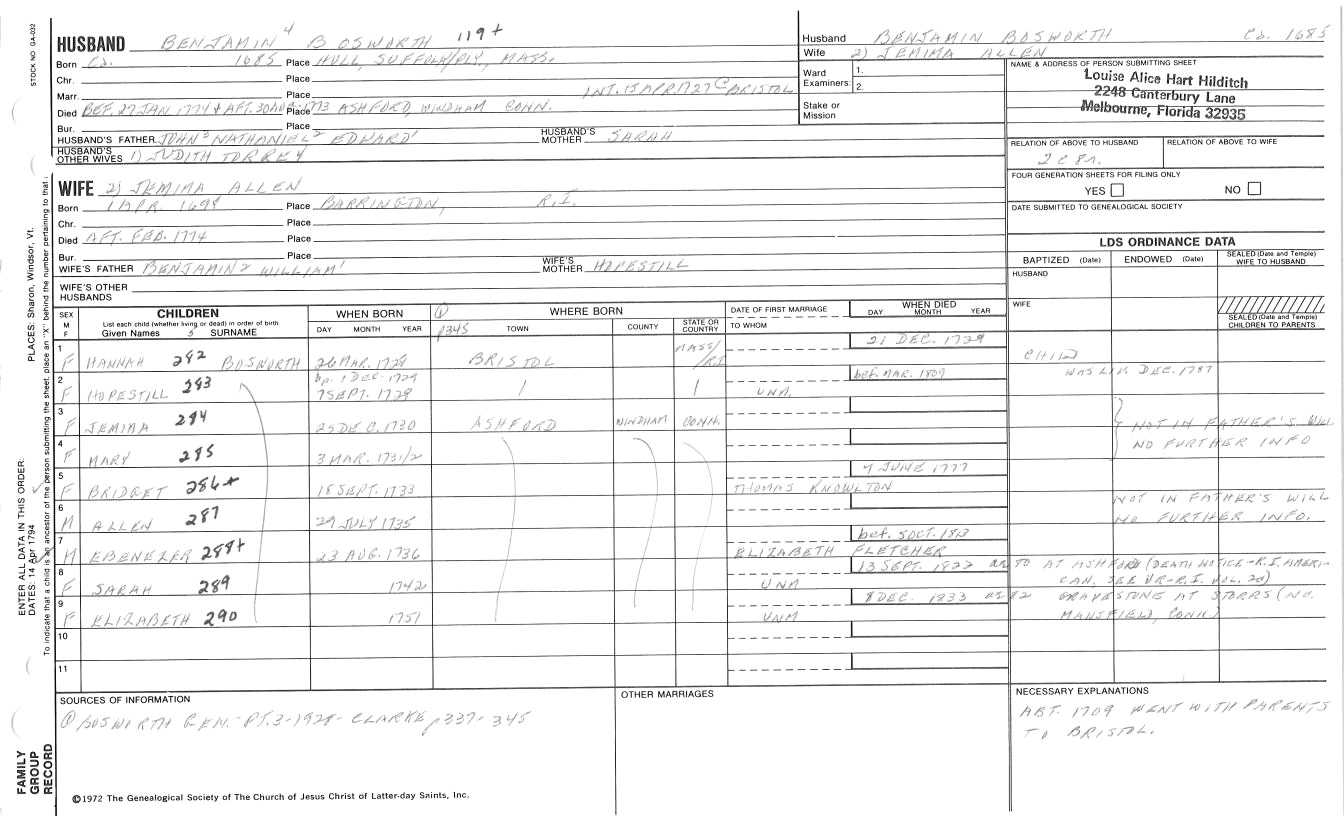 STOCK NO GA-032
HUSBAND BENJAMIN 4 BOSWORTH 119+
Born Ca. 1685 Place HULL, SUFFOLK/PLY., MASS.
Chr. Place
Marr. Place INT. 15 APR 1727 BRISTOL
Died BEF. 27 JAN 1774 & AFT. 30 1773 Place ASHFORD, WINDHAM CONN.
Bur. Place
HUSBAND'S FATHER JOHN 3 NATHANIEL 2 EDWARD 1 HUSBAND'S MOTHER SARAH
HUSBAND'S OTHER WIVES 1) JUDITH TORREY
Husband BENJAMIN BOSWORTH Ca. 1685
Wife 2) JEMIMA ALLEN
Ward Examiners 1.
2.
Stake or Mission
NAME & ADDRESS OF PERSON SUBMITTING SHEET
Louise Alice Hart Hilditch
2248 Canterbury Lane
Melbourne, Florida 32935
RELATION OF ABOVE TO HUSBAND RELATION OF ABOVE TO WIFE
2 C 8r.
FOUR GENERATION SHEETS FOR FILING ONLY
YES NO
DATE SUBMITTED TO GENEALOGICAL SOCIETY
WIFE 2) JEMIMA ALLEN
Born 1 APR. 1698 Place BARRINGTON, R.I.
Chr. Place
Died AFT. FEB. 1774 Place
Bur. Place
WIFE'S FATHER BENJAMIN 2 WILLIAM 1 WIFE'S MOTHER HOPESTILL
WIFE'S OTHER HUSBANDS
LDS ORDINANCE DATA
BAPTIZED (Date) ENDOWED (Date) SEALED (Date and Temple) WIFE TO HUSBAND
HUSBAND
WIFE
SEALED (Date and Temple) CHILDREN TO PARENTS
SEX M F CHILDREN WHEN BORN ① p345 WHERE BORN DATE OF FIRST MARRIAGE WHEN DIED
List each child (whether living or dead) in order of birth
Given Names 5 SURNAME DAY MONTH YEAR TOWN COUNTY STATE OR COUNTRY TO WHOM DAY MONTH YEAR
1 F HANNAH 282 BOSWORTH 26 MAR. 1728 BRISTOL MASS/RI 21 DEC. 1729 CHILD
2 F HOPESTILL 283 bp. 1 DEC. 1729 7 SEPT. 1729 UNM. bef. MAR. 1807 WAS LIV. DEC. 1787
3 F JEMIMA 284 25 DEC. 1730 ASHFORD WINDHAM CONN. NOT IN FATHER'S WILL
4 F MARY 285 3 MAR. 1731/2 NO FURTHER INFO
5 F BRIDGET 286+ 18 SEPT. 1733 THOMAS KNOWLTON 7 JUNE 1777
6 M ALLEN 287 29 JULY 1735 NOT IN FATHER'S WILL NO FURTHER INFO.
7 M EBENEZER 288+ 23 AUG. 1736 ELIZABETH FLETCHER bef. 5 OCT. 1813
8 F SARAH 289 1742 UNM 13 SEPT. 1822 AT ASHFORD (DEATH NOTICE - R.I. AMERICAN. SEE VR-R.I. VOL. 20)
9 F ELIZABETH 290 1751 UNM 8 DEC. 1833 ae 82 GRAVESTONE AT STORRS (NO. MANSFIELD, CONN.)
10
11
SOURCES OF INFORMATION
① BOSWORTH GEN. - PT. 3 - 1928 - CLARKE p 337-345
OTHER MARRIAGES
NECESSARY EXPLANATIONS
ABT. 1709 WENT WITH PARENTS
TO BRISTOL.
©1972 The Genealogical Society of The Church of Jesus Christ of Latter-day Saints, Inc.
FAMILY
GROUP
RECORD
ENTER ALL DATA IN THIS ORDER:
DATES: 14 Apr 1794
PLACES: Sharon, Windsor, Vt.
To indicate that a child is an ancestor of the person submitting the sheet, place an "X" behind the number pertaining to that